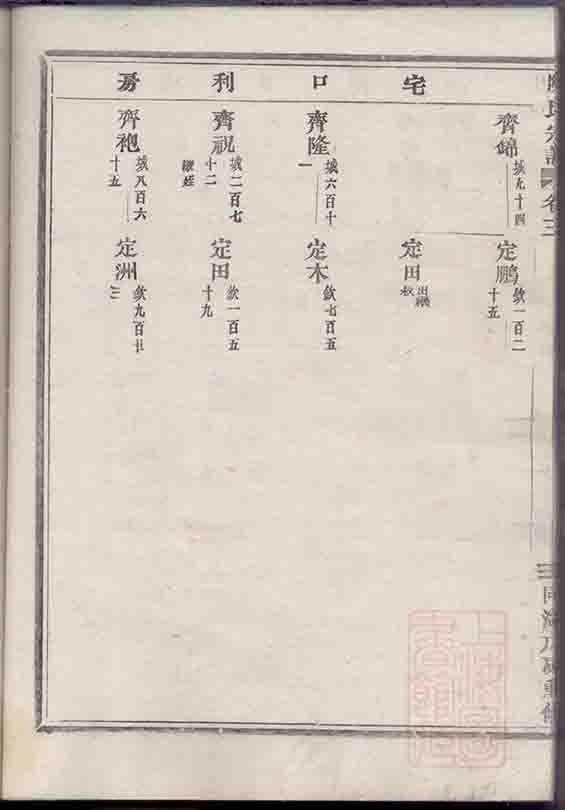 氏宗譜 卷三
宅口利房
齊錦 城九十四
定鵬 欽一百二十五
定田 出繼
齊隆 城六百十一
定木 欽七百五
齊祝 城二百七十二
定田 欽一百五十九
齊袍 城八百六十五
定洲 欽九百廿二